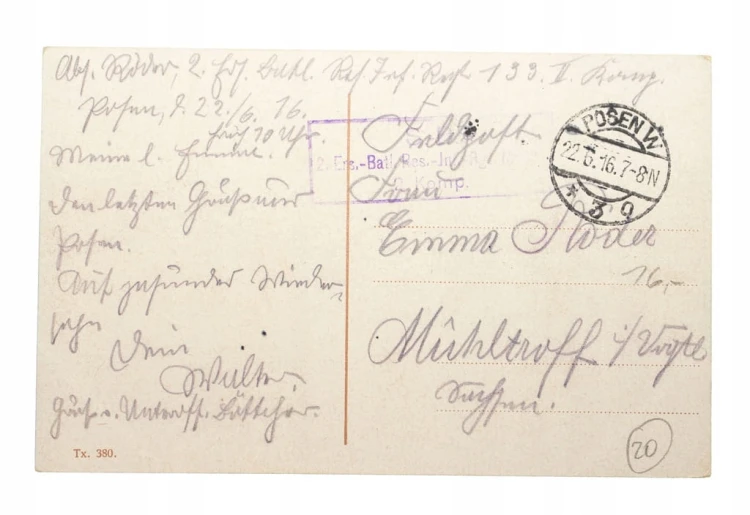 Abs. Röder, 2. Ers. Batl. Res. Inf. Regt. 133. II. Komp.
Posen, d. 22./6. 16.
früh 10 Uhr.
Meine l. Emma.
Den letzten Gruß aus
Posen.
Auf gesundes Wieder-
sehn
Dein
Walter.
Gruß v. Unteroff. Böttcher.
Tx. 380.
Feldpost.
2. Ers.-Batl. Res.-Inf.
Komp.
Frau
Emma Röder
Mühltroff i/Vogtl
Sachsen.
POSEN W
22.6.16.7-8N
* 3 g
16,-
20